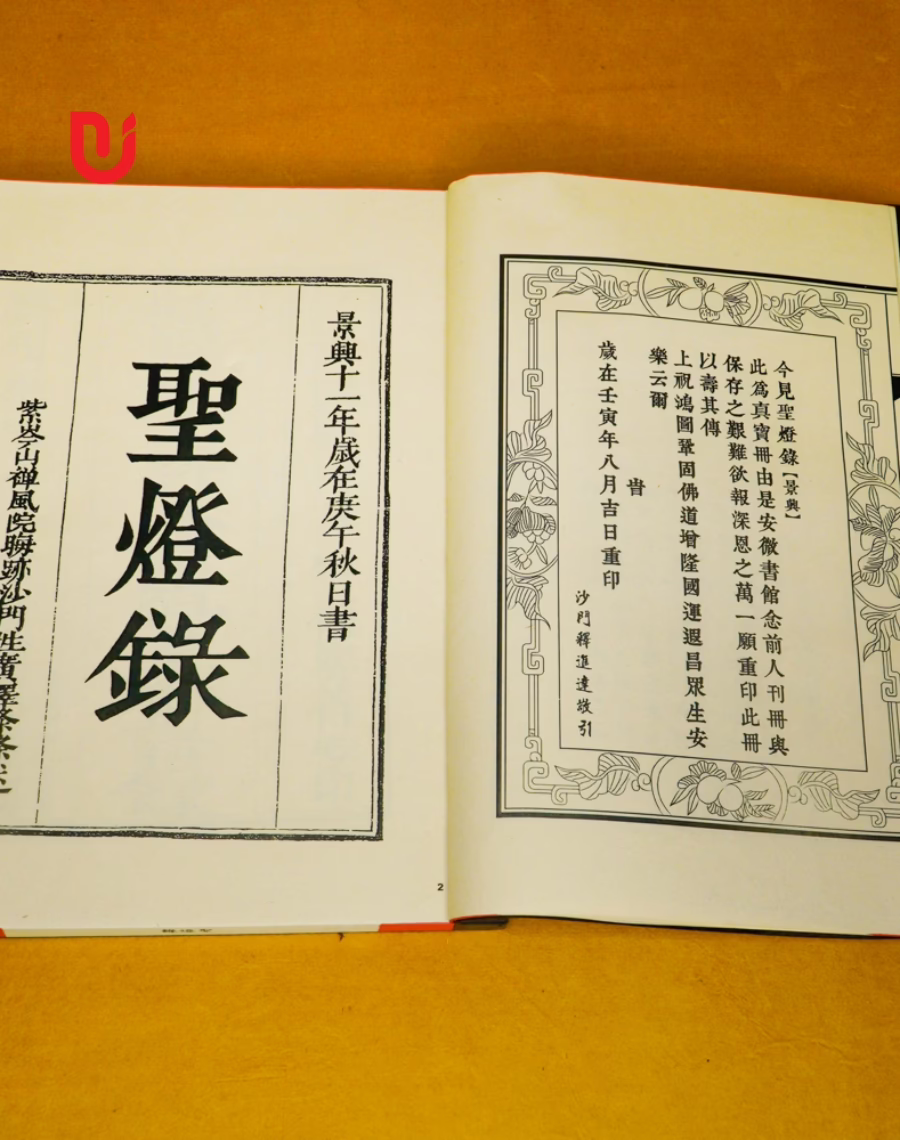 景興十一年歲在庚午秋日書
聖燈錄
紫岑山禅風院晦跡沙門性廣釋
2
今見聖燈錄【景興】
此爲真寶冊由是安微書館念前人刊冊與
保存之艱難欲報深恩之萬一願重印此冊
以壽其傳
上祝鴻圖鞏固佛道增隆國運遐昌眾生安
樂云爾
旹
歲在壬寅年八月吉日重印
沙門釋進達敬引